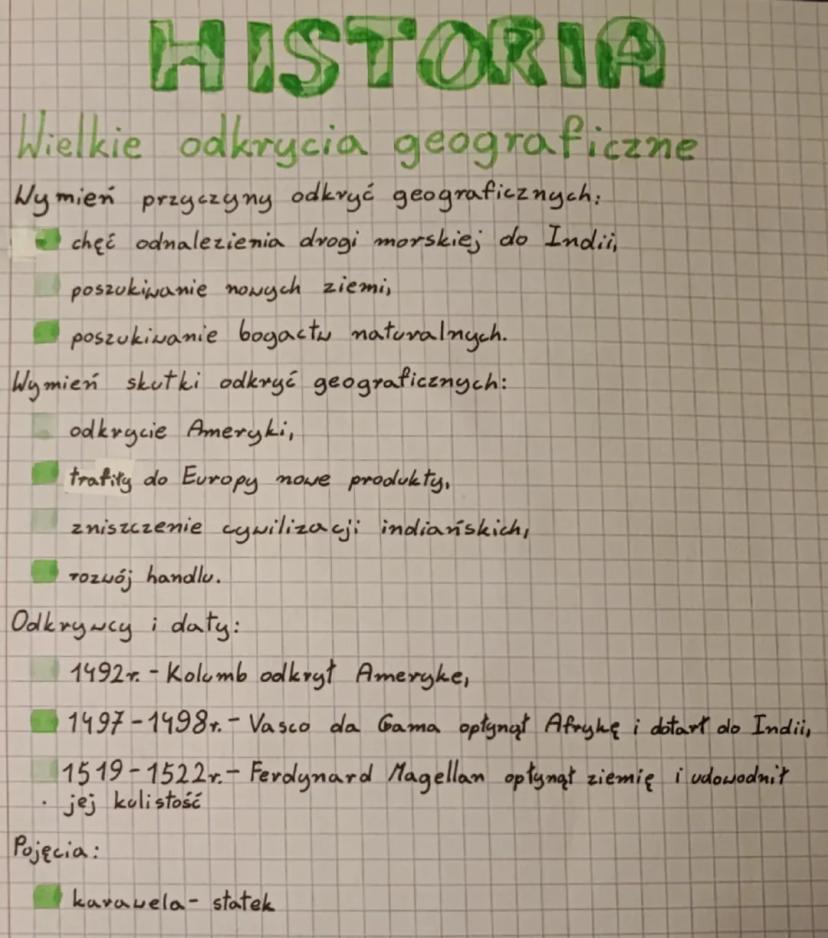 HISTORIA
Wielkie odkrycia geograficzne
Wymień przyczyny odkryć geograficznych:
chęć odnalezienia drogi morskiej do Indii,
poszukiwanie nowych ziemi,
poszukiwanie bogactw naturalnych.
Wymień skutki odkryć geograficznych:
odkrycie Ameryki,
trafiły do Europy nowe produkty,
zniszczenie cywilizacji indiańskich,
rozwój handlu.
Odkrywcy i daty:
1492r. - Kolumb odkrył Amerykę,
1497-1498r. - Vasco da Gama opłynął Afrykę i dotarł do Indii,
1519-1522r. - Ferdynard Magellan opłynął ziemię i udowodnił
jej kulistość
Pojęcia:
karawela - statek